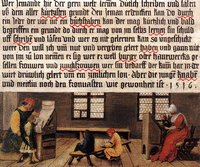 Wer jemandt hie der gern welt lernen Dütsch schriben und läsen
uß dem aller kürtzisten grundt den jeman erdencken kan Do durch
ein jeder der vor nit ein büchstaben kan der mag kürtzlich und bald
begriffen ein grundt do durch er mag von jm selbs lernen sin schuld
uff schribē und läsen und wer es nit gelernen kan so ungeschickt
were den will ich um nüt und vergeben gelert haben und gantz nüt
von jm zů lon nemen er sig wer er well burger oder hantwercks ge
sellen frouwen und junckfrouwen wer sin bedarff der kum har jn der
wirt drüwlich gelert um ein zimlichen lon · Aber die junge knabē
und meitlin noch den fronvasten wie gewonheit ist · 1516 ·